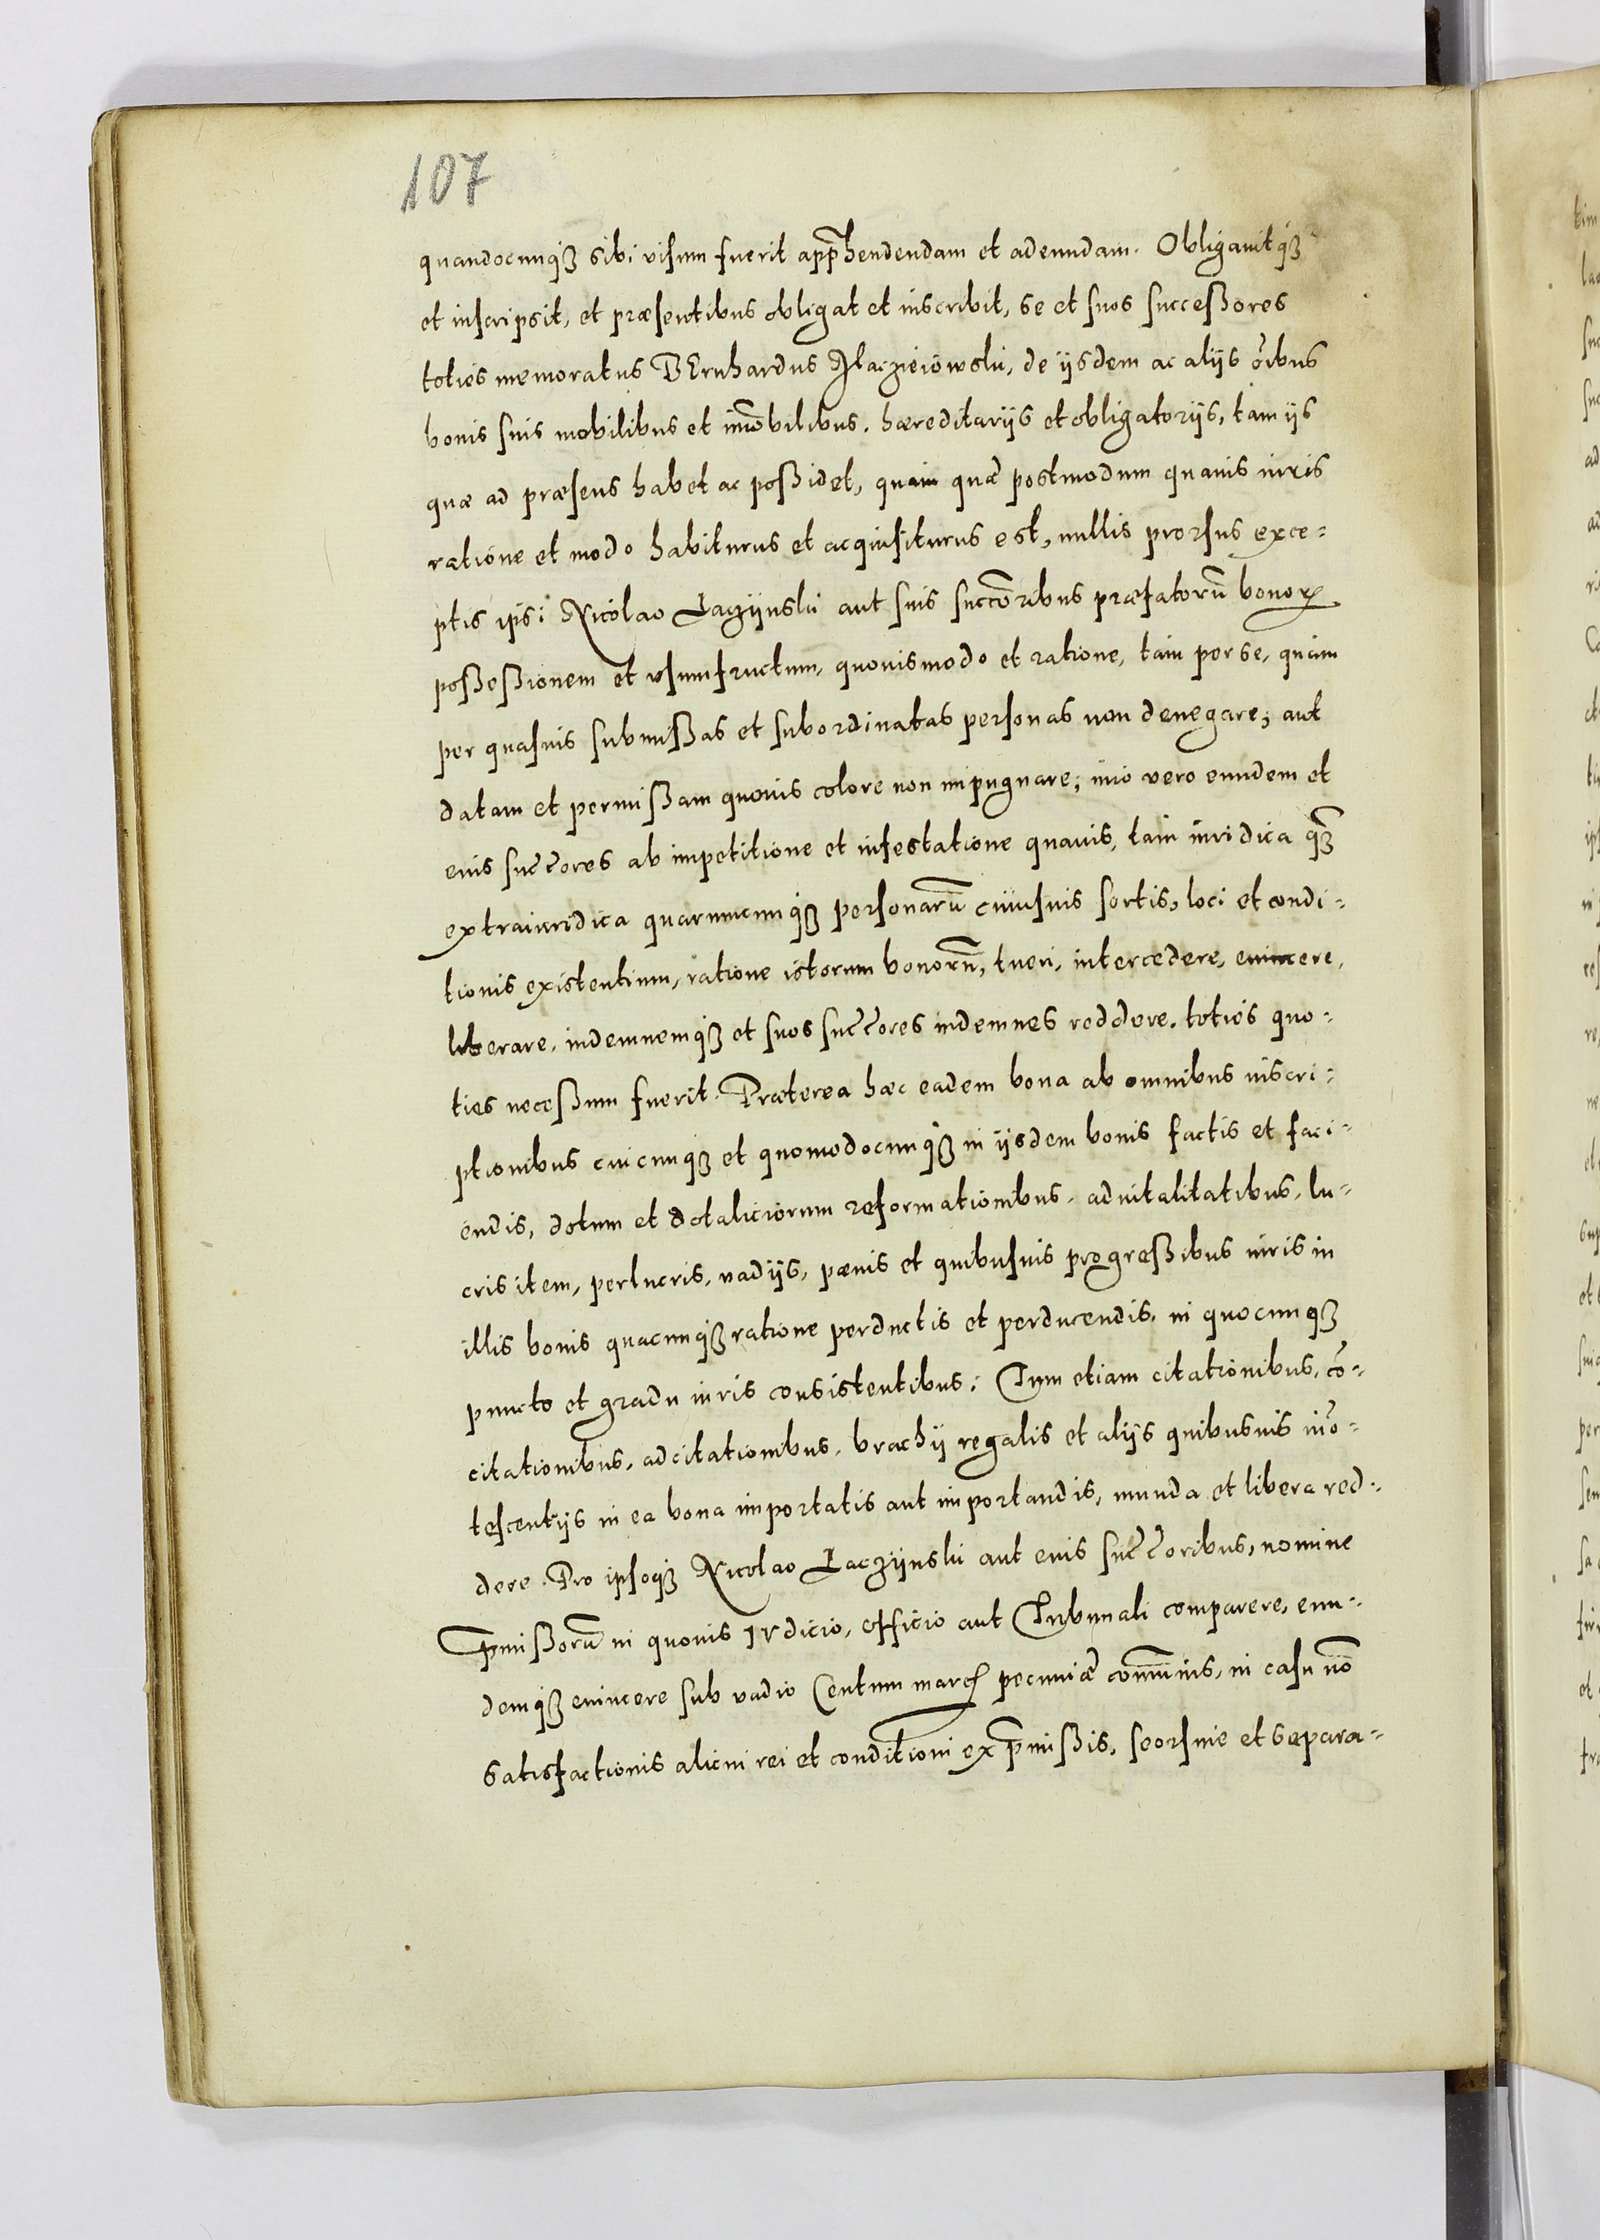 107
quandocunq₃ sibi visum fuerit app̄hendendam et adeundam. Obligauitq₃
et inscripsit, et præsentibus obligat et inscribit, se et suos successores
toties memoratus BErnhardus de ijsdem ac alijs oĩbus
bonis suis mobilibus et im̃obilibus, hæreditarijs et obligatorijs, tam ijs
quæ ad præsens habet ac possidet, quam quæ postmodum quauis iuris
ratione et modo habiturus et acquisiturus est, nullis prorsus exce-
ptis ipsi Nicolao Laczÿnski aut suis succ̃oribus præfatorũ bonoꝝ
possessionem et vsumfructum, quouismodo et ratione, tam per se, quam
per quasuis submissas et subordinatas personas non denegare; aut
datam et permissam quouis colore non impugnare; imo vero eundem et
eius succ̃ores ab impetitione et infestatione quauis, tam iuridica q̃₃
extraiuridica quarumcunq₃ personarũ cuiusuis sortis, loci et condi-
tionis existentium, ratione istorum bonorũ, tueri, intercedere, euincere,
liberare, indemnemq₃ et suos succ̃ores indemnes reddere, toties quo-
ties necessum fuerit. Præterea hæc eadem bona ab omnibus inscri-
ptionibus cuicunq₃ et quomodocunq₃ in ijsdem bonis factis et faci-
endis, dotum et dotaliciorum reformationibus, aduitalitatibus, lu-
cris item, perlucris, vadijs, pænis et quibusuis progressibus iuris in
illis bonis quacunq₃ ratione perductis et perducendis, in quocunq₃
puncto et gradu iuris consistentibus; Tum etiam citationibus, cõ-
citationibus, adcitationibus, brachij regalis et alijs quibusuis iñо-
tescentijs in ea bona importatis aut importandis, munda et libera red-
dere. Pro ipsoq₃ Nicolao Laczÿnski aut eius succ̃oribus, nomine
p̄missorũ in quouis IVdicio, officio aut Tribunali comparere, eun-
demq₃ euincere sub vadio Centum marcꝭ pecuniæ com̃unis, in casu nõ
satisfactionis alicui rei et conditioni ex p̄missis, seorsiue et separa-